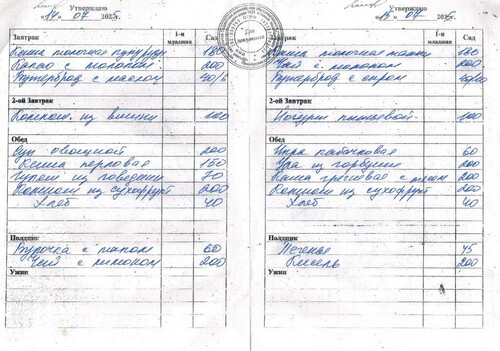 Утверждаю
«14» 07 2025г
Завтрак
1-я младшая
Сад
Каша молочная кукуруз
180
Какао с молоком
200
Бутерброд с маслом
40/6
2-ой Завтрак
Компот из вишни
100
Обед
Суп овощной
200
Каша перловая
150
Гуляш из говядины
70
Компот из сухофрукт
200
Хлеб
40
Полдник
Булочка с маком
60
Чай с лимоном
200
Ужин
Для документов
Утверждаю
«15» 07 2025г
Завтрак
1-я младшая
Сад
Каша молочная
180
Чай с молоком
200
Бутерброд с сыром
2-ой Завтрак
Йогурт питьевой
100
Обед
Икра кабачковая
60
Уха из горбуши
200
Каша гречневая с мясом
200
Компот из сухофрукт
200
Хлеб
40
Полдник
Печенье
45
Кисель
200
Ужин